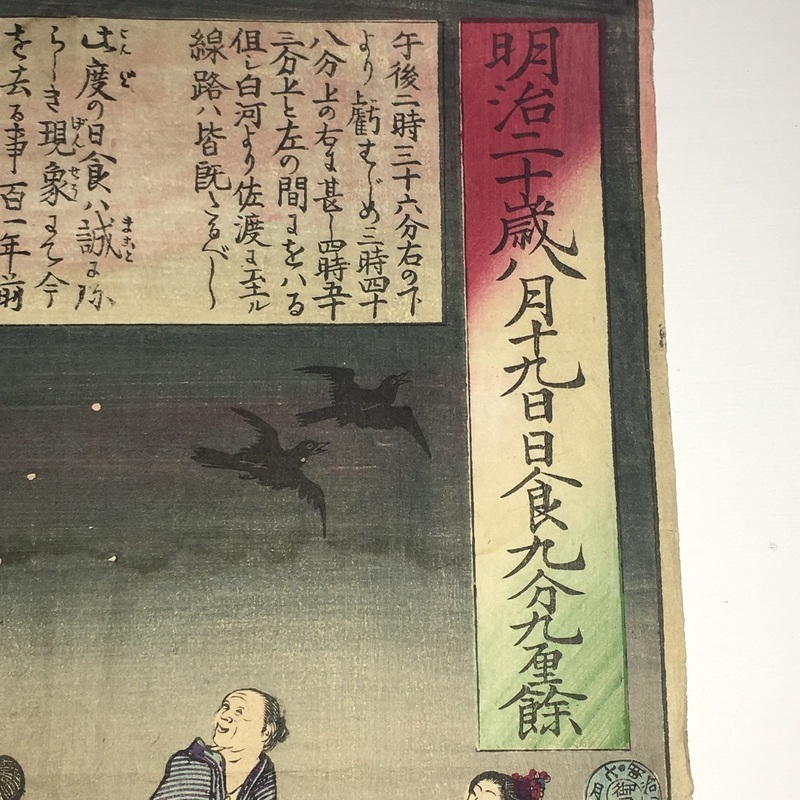 明治二十歳八月十九日日食九分九厘餘
午後二時三十六分右の下
より虧はじめ三時四十
八分上の右に甚しく四時五十
三分上と左の間にをはる
但シ白河より佐渡に至ル
線路ハ皆既なるべし
此度の日食ハ誠に珎
らしき現象にて今
を去る事百一年前